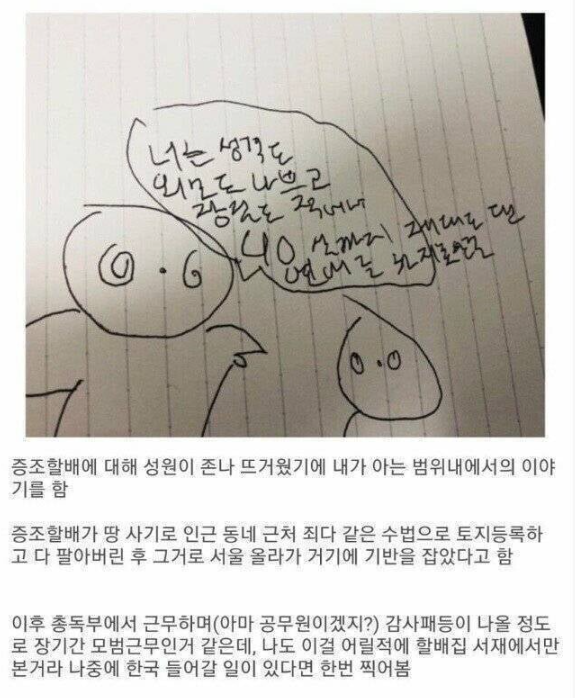 너는 성격도
외모도 나쁘고
40살까지 제대로 된
증조할배에 대해 성원이 존나 뜨거웠기에 내가 아는 범위내에서의 이야
기를 함
증조할배가 땅 사기로 인근 동네 근처 죄다 같은 수법으로 토지등록하
고 다 팔아버린 후 그거로 서울 올라가 거기에 기반을 잡았다고 함
이후 총독부에서 근무하며(아마 공무원이겠지?) 감사패등이 나올 정도
로 장기간 모범근무인거 같은데, 나도 이걸 어릴적에 할배집 서재에서만
본거라 나중에 한국 들어갈 일이 있다면 한번 찍어봄